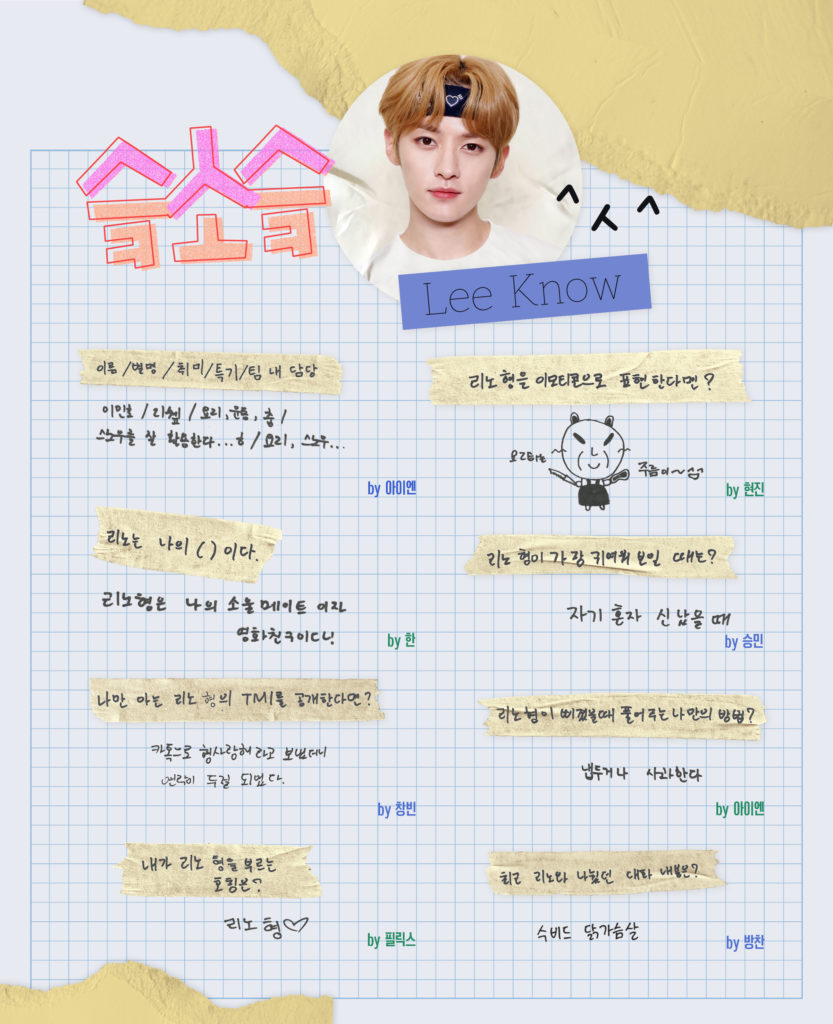 슥소슥
^ㅅ^
Lee Know
이름/별명/취미/특기/팀 내 담당
이민호 / 리쉪 / 요리, 운동, 춤 /
스노우를 잘 활용한다...ㅎ / 요리, 스노우...
by 아이엔
리노형을 이모티콘으로 표현한다면?
요리하는
주름이~
by 현진
리노는 나의 ( ) 이다.
리노형은 나의 소울메이트 이자
영화친구이다!
by 한
리노 형이 가장 귀여워 보일 때는?
자기 혼자 신났을 때
by 승민
나만 아는 리노 형의 TMI를 공개한다면?
카톡으로 형사랑해 라고 보냈더니
연락이 두절 되었다.
by 창빈
리노형이 삐졌을때 풀어주는 나만의 방법?
냅두거나 사과한다
by 아이엔
내가 리노 형을 부르는
호칭은?
리노 형♡
by 필릭스
최근 리노와 나눴던 대화 내용은?
수비드 닭가슴살
by 방찬